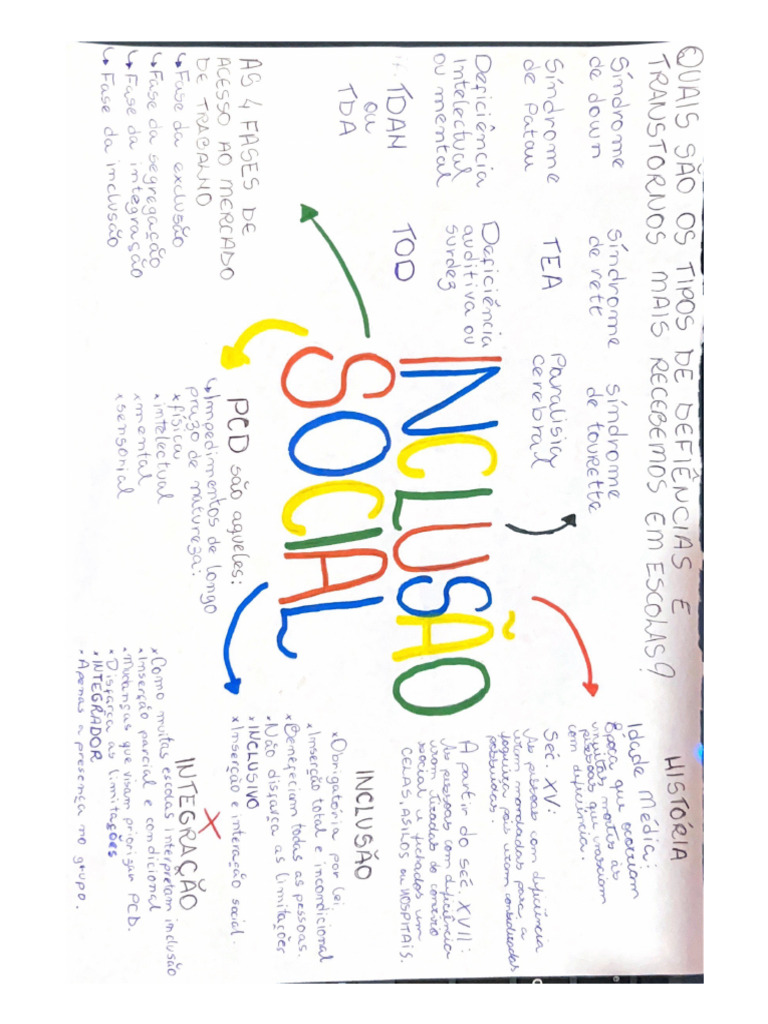 QUAIS SÃO OS TIPOS DE DEFIÊNCIAS E
TRANSTORNOS MAIS RECEBEMOS EM ESCOLAS?
Síndrome
de down
Síndrome
de rett
síndrome
de tourette
Síndrome
de Patau
TEA
Paralisia
cerebral
Deficiência
Intelectual
ou mental
Deficiência
auditiva ou
surdez
TDAH
ou
TDA
TOD
INCLUSÃO
SOCIAL
HISTÓRIA
Idade Média:
Época que ocorriam
muitas mortes às
pessoas que nasciam
com deficiência.
Séc. XV:
As pessoas com deficiência
eram mandadas para a
fogueira pois eram consideradas
possuídas.
A partir do séc XVII:
As pessoas com deficiência
eram tiradas do convívio
social e fechados em
CELAS, ASILOS ou HOSPITAIS.
AS 4 FASES DE
ACESSO AO MERCADO
DE TRABALHO
↳ Fase da exclusão
↳ Fase da segregação
↳ Fase da integração
↳ Fase da inclusão
PCD são aqueles:
↳ Impedimentos de longo
prazo de natureza:
x física
x intelectual
x mental
x sensorial
INCLUSÃO
x Obrigatória por lei
x Inserção total e incondicional
x Beneficiam todas as pessoas.
x Não disfarça as limitações
x INCLUSIVO
x Inserção e interação social.
X
INTEGRAÇÃO
x Como muitas escolas interpretam inclusão
x Inserção parcial e condicional
x Mudanças que visam priorizar PCD.
x Disfarça as limitações
x INTEGRADOR
x Apenas a presença no grupo.